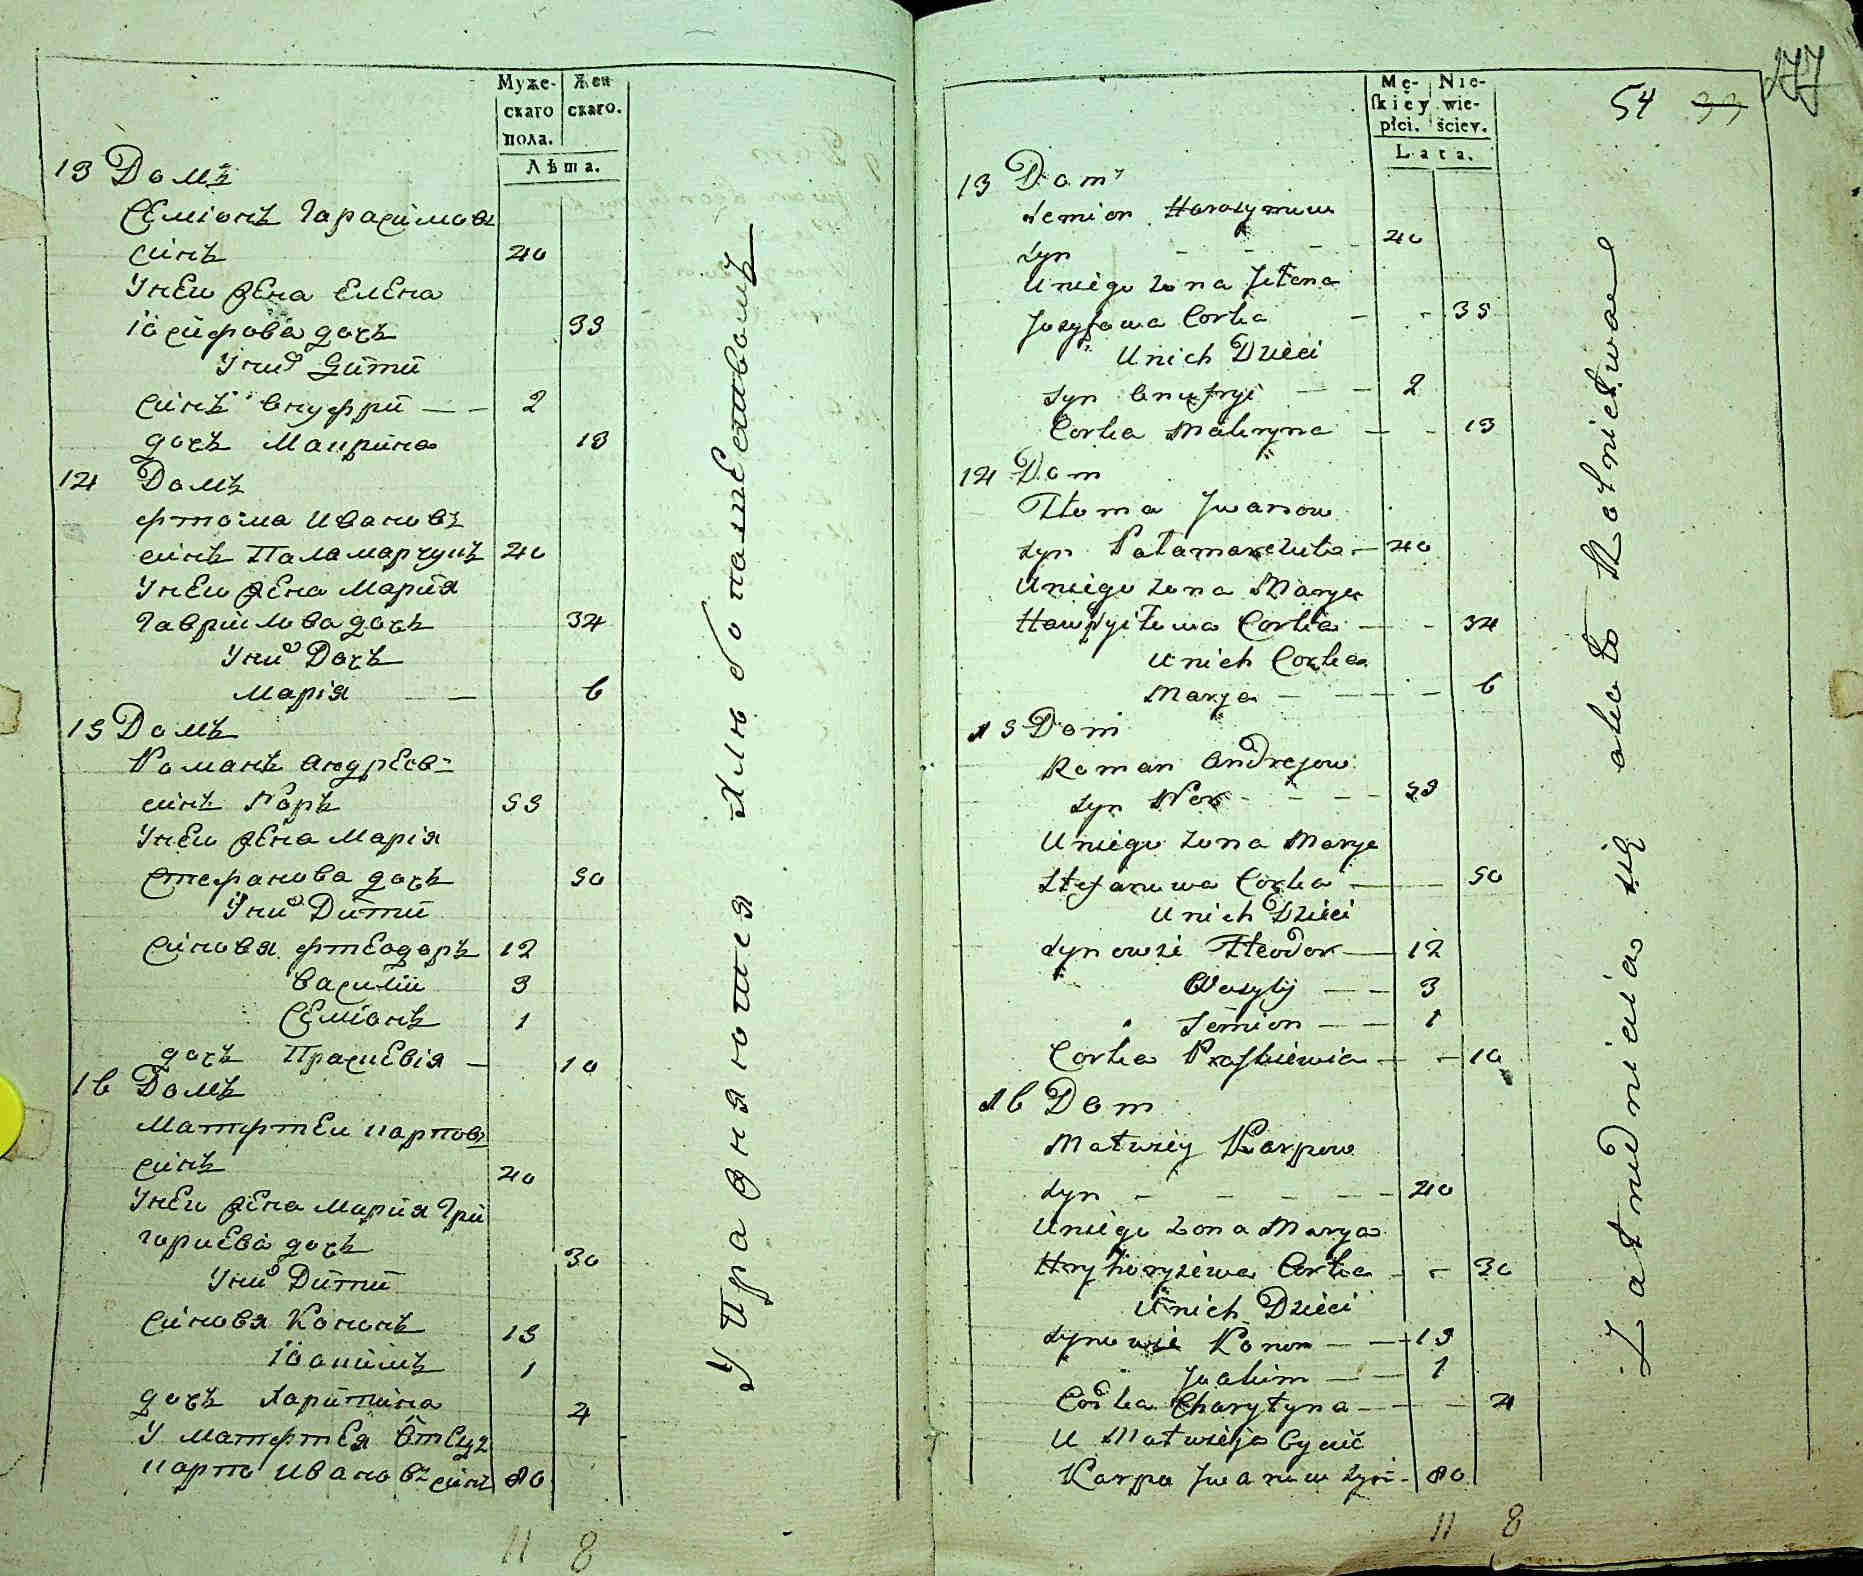 Муже- Жен
скаго скаго.
пола.
Лѣта.
13 Домъ
Семіонъ Гарасимовъ
синъ 40
У нею жена Елена
Іосифова дочъ 33
У нихъ Дити
синъ Внуфрій — — 2
дочъ Макрина 13
14 Домъ
Фтома Ивановъ
синъ Паламарчукъ 40
У нею жена Марія
Гавриилова дочъ 34
У нихъ Дочъ
Марія — 6
15 Домъ
Романъ Андреев=
синъ Норъ 53
У нею жена Марія
Стефанова дочъ 50
У нихъ Дити
синовя Фтеодоръ 12
Василій 3
Семіонъ 1
дочъ Праскевія — 10
16 Домъ
Матфтеи Карповъ
синъ 40
У нею жена Марія Гри
гориева дочъ 30
У нихъ Дити
синовя Кононъ 13
Іоакимъ 1
дочъ Харитина 4
У Матфтея Отецъ
Карпо Ивановъ синъ 80
11 8
Упражняются Хлѣбопашествомъ
Mę- Nie-
skiey wie-
płci. ściey.
Lata.
54 33 177
13 Dom
Semion Harasymow
syn - - - - 40
U niego żona Jełena
Jozyfowa Corka - - 33
U nich Dzieci
syn Onufryi — — 2
Corka Makryna — - 13
14 Dom
Ftoma Jwanow
syn Pałamarczuk — 40
U niego żona Marya
Hawryiłowa Corka — - 34
U nich Corka
Marya — — — 6
15 Dom
Roman Andrejow
syn Nor - - - — 53
U niego żona Marya
Stefanowa Corka — — 50
U nich Dzieci
synowie Fteodor — 12
Wasylij — — 3
Semion — — 1
Corka Praskiewia — — 10
16 Dom
Matwiey Karpow
syn - - - - — 40
U niego żona Marya
Hryhoryiewa Corka - - 30
U nich Dzieci
synowie Konon — — 13
Joakim — — 1
Corka Charytyna — — - 4
U Matwieja Oyciec
Karpo Jwanow syn - 80
11 8
Zatrudniaią się około Rolnictwa